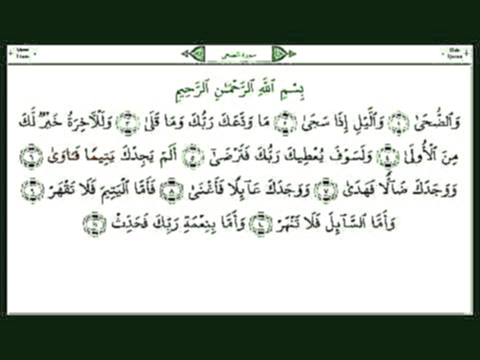 سورة الضحى
بِسْمِ اللَّهِ الرَّحْمَٰنِ الرَّحِيمِ
وَالضُّحَىٰ ١ وَاللَّيْلِ إِذَا سَجَىٰ ٢ مَا وَدَّعَكَ رَبُّكَ وَمَا قَلَىٰ ٣ وَلَلْآخِرَةُ خَيْرٌ لَّكَ
مِنَ الْأُولَىٰ ٤ وَلَسَوْفَ يُعْطِيكَ رَبُّكَ فَتَرْضَىٰ ٥ أَلَمْ يَجِدْكَ يَتِيمًا فَآوَىٰ ٦
وَوَجَدَكَ ضَالًّا فَهَدَىٰ ٧ وَوَجَدَكَ عَائِلًا فَأَغْنَىٰ ٨ فَأَمَّا الْيَتِيمَ فَلَا تَقْهَرْ ٩
وَأَمَّا السَّائِلَ فَلَا تَنْهَرْ ١٠ وَأَمَّا بِنِعْمَةِ رَبِّكَ فَحَدِّثْ ١١